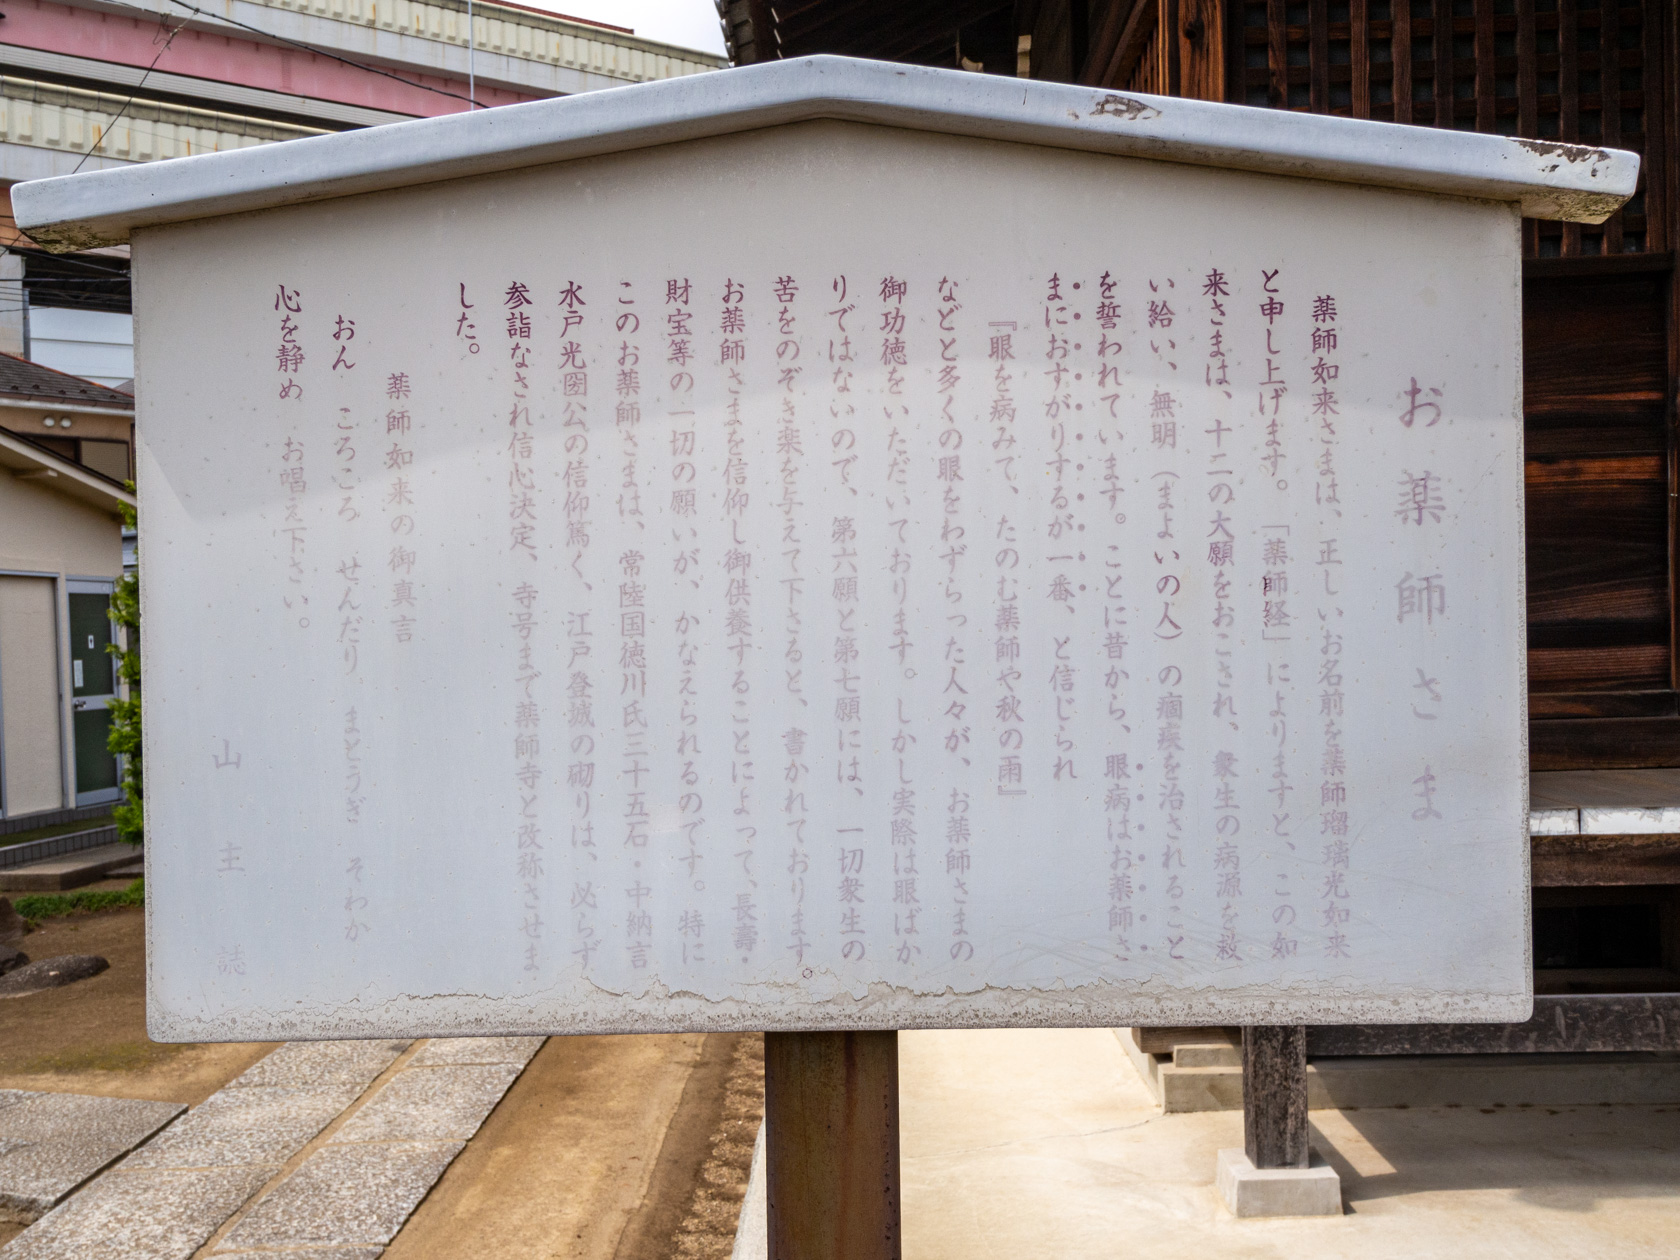 お薬師さま
薬師如来さまは、正しいお名前を薬師瑠璃光如来
と申し上げます。「薬師経」によりますと、この如
来さまは、十二の大願をおこされ、衆生の病源を救
い給い、無明（まよいの人）の痼疾を治されること
を誓われています。ことに昔から、眼病はお薬師さ
まにおすがりするが一番、と信じられ
『眼を病みて、たのむ薬師や秋の雨』
などと多くの眼をわずらった人々が、お薬師さまの
御功徳をいただいております。しかし実際は眼ばか
りではないので、第六願と第七願には、一切衆生の
苦をのぞき楽を与えて下さると、書かれております
お薬師さまを信仰し御供養することによって、長壽・
財宝等の一切の願いが、かなえられるのです。特に
このお薬師さまは、常陸国徳川氏三十五石・中納言
水戸光圀公の信仰篤く、江戸登城の砌りは、必らず
参詣なされ信心決定、寺号まで薬師寺と改称させま
した。
薬師如来の御真言
おん　ころころ　せんだり　まとうぎ　そわか
心を静め　お唱え下さい。
山主誌